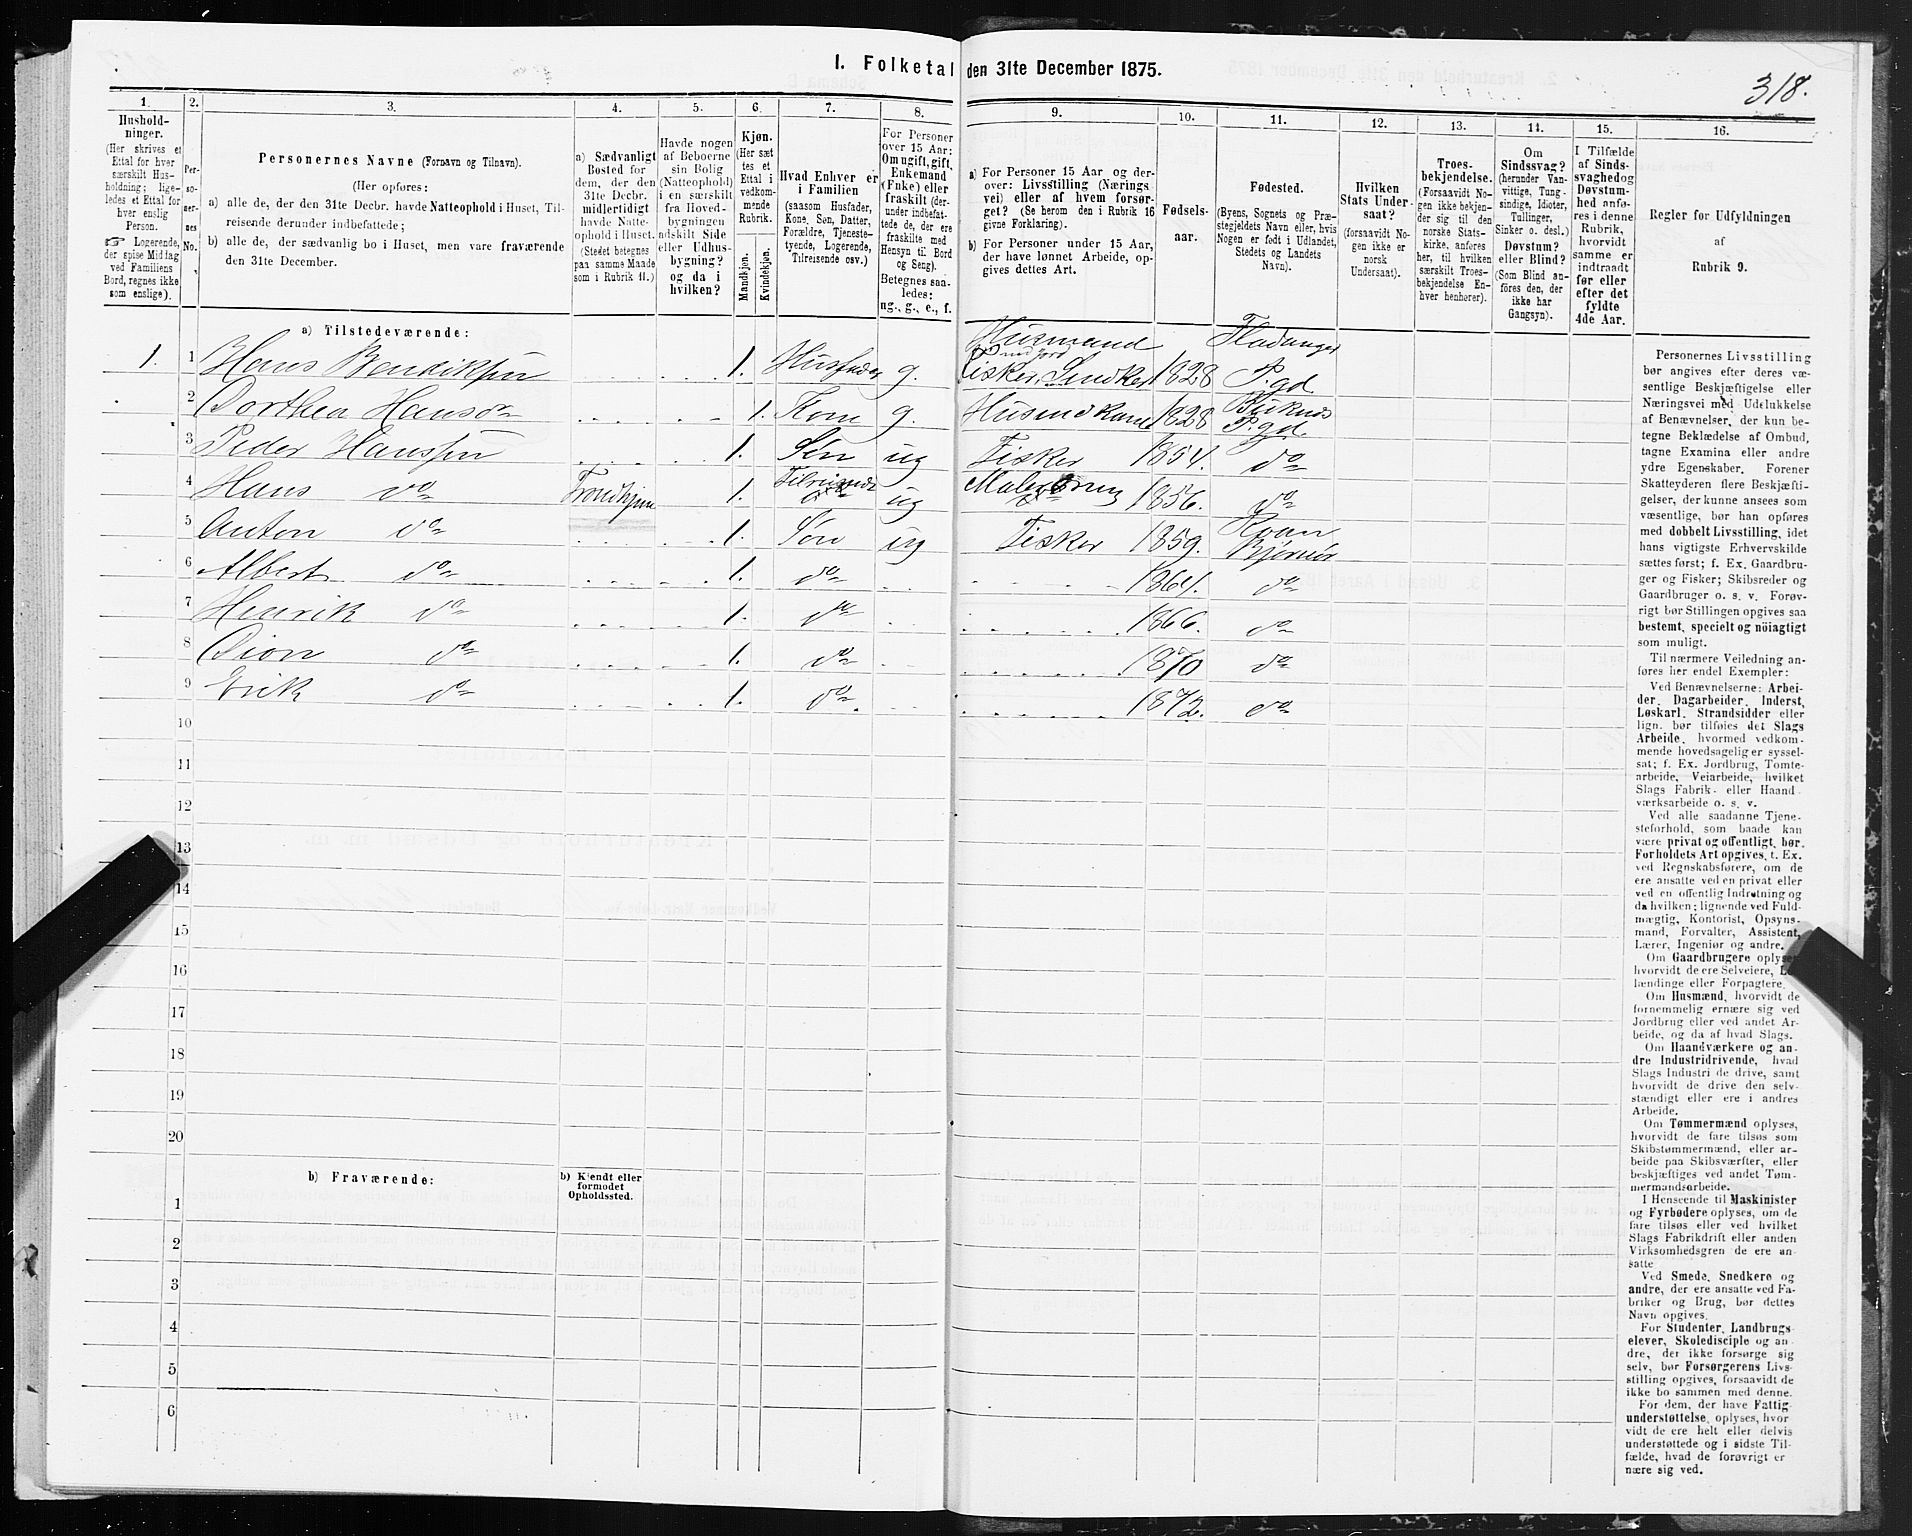 1. Folketal den 31te December 1875.
318.
1.
Hushold-
ninger.
(Her skrives et
Ettal for hver
særskilt Hus-
holdning; lige-
ledes et Ettal for
hver enslig
Person.
☞ Logerende,
der spise Middag
ved Familiens
Bord, regnes ikke
som enslige).
2.
Per-
so-
ner-
nes
No.
3.
Personernes Navne (Fornavn og Tilnavn).
(Her opføres:
a) alle de, der den 31te Decbr. havde Natteophold i Huset, Til-
reisende derunder indbefattede;
b) alle de, der sædvanlig bo i Huset, men vare fraværende
den 31te December.
4.
a) Sædvanligt
Bosted for
dem, der den
31te Decbr.
midlertidigt
havde Natte-
ophold i Huset.
(Stedet betegnes
paa samme Maade
som i Rubrik 11.)
5.
Havde nogen
af Beboerne
sin Bolig
(Natteophold)
i en særskilt
fra Hoved-
bygningen
adskilt Side
eller Udhus-
bygning?
og da i
hvilken?
6.
Kjøn.
(Her sæt
tes et
Ettal i
vedkom-
mende
Rubrik.
Mandkjøn.
Kvindekjøn.
7.
Hvad Enhver er
i Familien
(saasom Husfader,
Kone, Søn, Datter,
Forældre, Tjeneste-
tyende, Logerende,
Tilreisende osv.)
8.
For Personer
over 15 Aar:
Om ugift, gift,
Enkemand
(Enke) eller
fraskilt (der-
under indbefat-
tede de, der ere
fraskilte med
Hensyn til Bord
og Seng).
Betegnes saa-
ledes:
ug., g., e., f.
9.
a) For Personer 15 Aar og der-
over: Livsstilling (Nærings
vei) eller af hvem forsør-
get? (Se herom den i Rubrik 16
givne Forklaring).
b) For Personer under 15 Aar,
der have lønnet Arbeide, op-
gives dettes Art.
10.
Fødsels-
aar.
11.
Fødested.
(Byens, Sognets og Præ-
stegjeldets Navn eller, hvis
Nogen er født i Udlandet,
Stedets og Landets
Navn).
12.
Hvilken
Stats Under-
saat?
(forsaavidt No-
gen ikke er
norsk
Undersaat).
13.
Troes-
bekjendelse.
(Forsaavidt No-
gen ikke bekjen-
der sig til den
norske Stats-
kirke, anføres
her, til hvilken
særskilt Troes-
bekjendelse En-
hver henhører).
14.
Om
Sindssvag?
(herunder Van-
vittige, Tung-
sindige, Idioter,
Tullinger,
Sinker o. desl.)
Døvstum?
eller Blind?
(Som Blind an-
føres den, der
ikke har
Gangsyn).
15.
I Tilfælde
af Sinds-
svaghedog
Døvstum-
hed anfø-
res i denne
Rubrik,
hvorvidt
samme er
indtraadt
før eller
efter det
fyldte
4de Aar.
16.
Regler for Udfyldningen
af
Rubrik 9.
a) Tilstedeværende:
Husmand Fladanger
med Jord
1. 1 Hans Bendiksen 1. Husfader g. Fisker, Snedker 1828 P.gd
2 Dorthea Hansdr 1. Kone g. Husmdskone 1828
P.gd.
3 Peder Hanssen 1. Søn ug Fisker 1854. do
4 Hans do Trondhjem 1. Tilreisende ug 1856. do
5 Anton do 1. Søn ug Fisker 1859. Roan
Bjørnør
6 Albert do 1. do 1864. do
7 Henrik do 1. do 1866. do
8 do 1. do 1870 do
9 Erik do 1. do. 1872. do
10
11
12
13
14
15
16
17
18
19
20
b) Fraværende:
b) Kjendt eller
formodet
Opholdssted.
1
2
3
4
5
6
Personernes Livsstilling
bør angives efter deres væ-
sentlige Beskjæftigelse eller
Næringsvei med Udelukkelse
af Benævnelser, der kun be-
tegne Beklædelse af Ombud,
tagne Examina eller andre
ydre Egenskaber. Forener
Skatteyderen flere Beskjæfti-
gelser, der kunne ansees som
væsentlige, bør han opføres
med dobbelt Livsstilling, idet
hans vigtigste Erhvervskilde
sættes først; f. Ex. Gaardbru-
ger og Fisker; Skibsreder og
Gaardbruger o. s. v. Forøv-
rigt bør Stillingen opgives saa
bestemt, specielt og nöiagtigt
som muligt.
Til nærmere Veiledning an-
føres her endel Exempler:
Ved Benævnelserne: Arbei-
der, Dagarbeider, Inderst,
Løskarl, Strandsidder eller
lign. bør tilføies det Slags
Arbeide, hvormed vedkom-
mende hovedsagelig er syssel-
sat; f. Ex. Jordbrug, Tomte-
arbeide, Veiarbeide, hvilket
Slags Fabrik- eller Haand-
værksarbeide o. s. v.
Ved alle saadanne Tjene-
steforhold, som baade kan
være privat og offentligt, bør
Forholdets Art opgives, t. Ex.
ved Regnskabsførere, om de
ere ansatte ved en privat eller
ved en offentlig Indretning og
da hvilken; lignende ved Fuld-
mægtig, Kontorist, Opsyns-
mand, Forvalter, Assistent,
Lærer, Ingeniør og andre.
Om Gaardbrugere oplyses
hvorvidt de ere Selveiere,
lændinge eller Forpagtere.
Om Husmænd, hvorvidt de
fornemmelig ernære sig ved
Jordbrug eller ved andet Ar-
beide, og da af hvad Slags.
Om Haandværkere og an-
dre Industridrivende, hvad
Slags Industri de drive, samt
hvorvidt de drive den selv-
stændigt eller ere i andres
Arbeide.
Om Tømmermænd oplyses,
hvorvidt de fare tilsøs som
Skibstømmermænd, eller ar-
beide paa Skibsværfter, eller
beskjæftiges ved andet Tøm-
mermandsarbeide.
I Henseende til Maskinister
og Fyrbødere oplyses, om de
fare tilsøs eller ved hvilket
Slags Fabrikdrift eller anden
Virksomhedsgren de ere an-
satte
Ved Smede, Snedkere og
andre, der ere ansatte ved Fa-
briker og Brug, bør dettes
Navn opgives.
For Studenter, Landbrugs-
elever, Skoledisciple og an-
dre, der ikke forsørge sig
selv, bør Forsørgerens Livs-
stilling opgives, forsaavidt de
ikke bo sammen med denne.
For dem, der have Fattig-
understøttelse, oplyses, hvor
vidt de ere helt eller delvis
understøttede og i sidste Til-
fælde, hvad de forøvrigt er
nære sig ved.